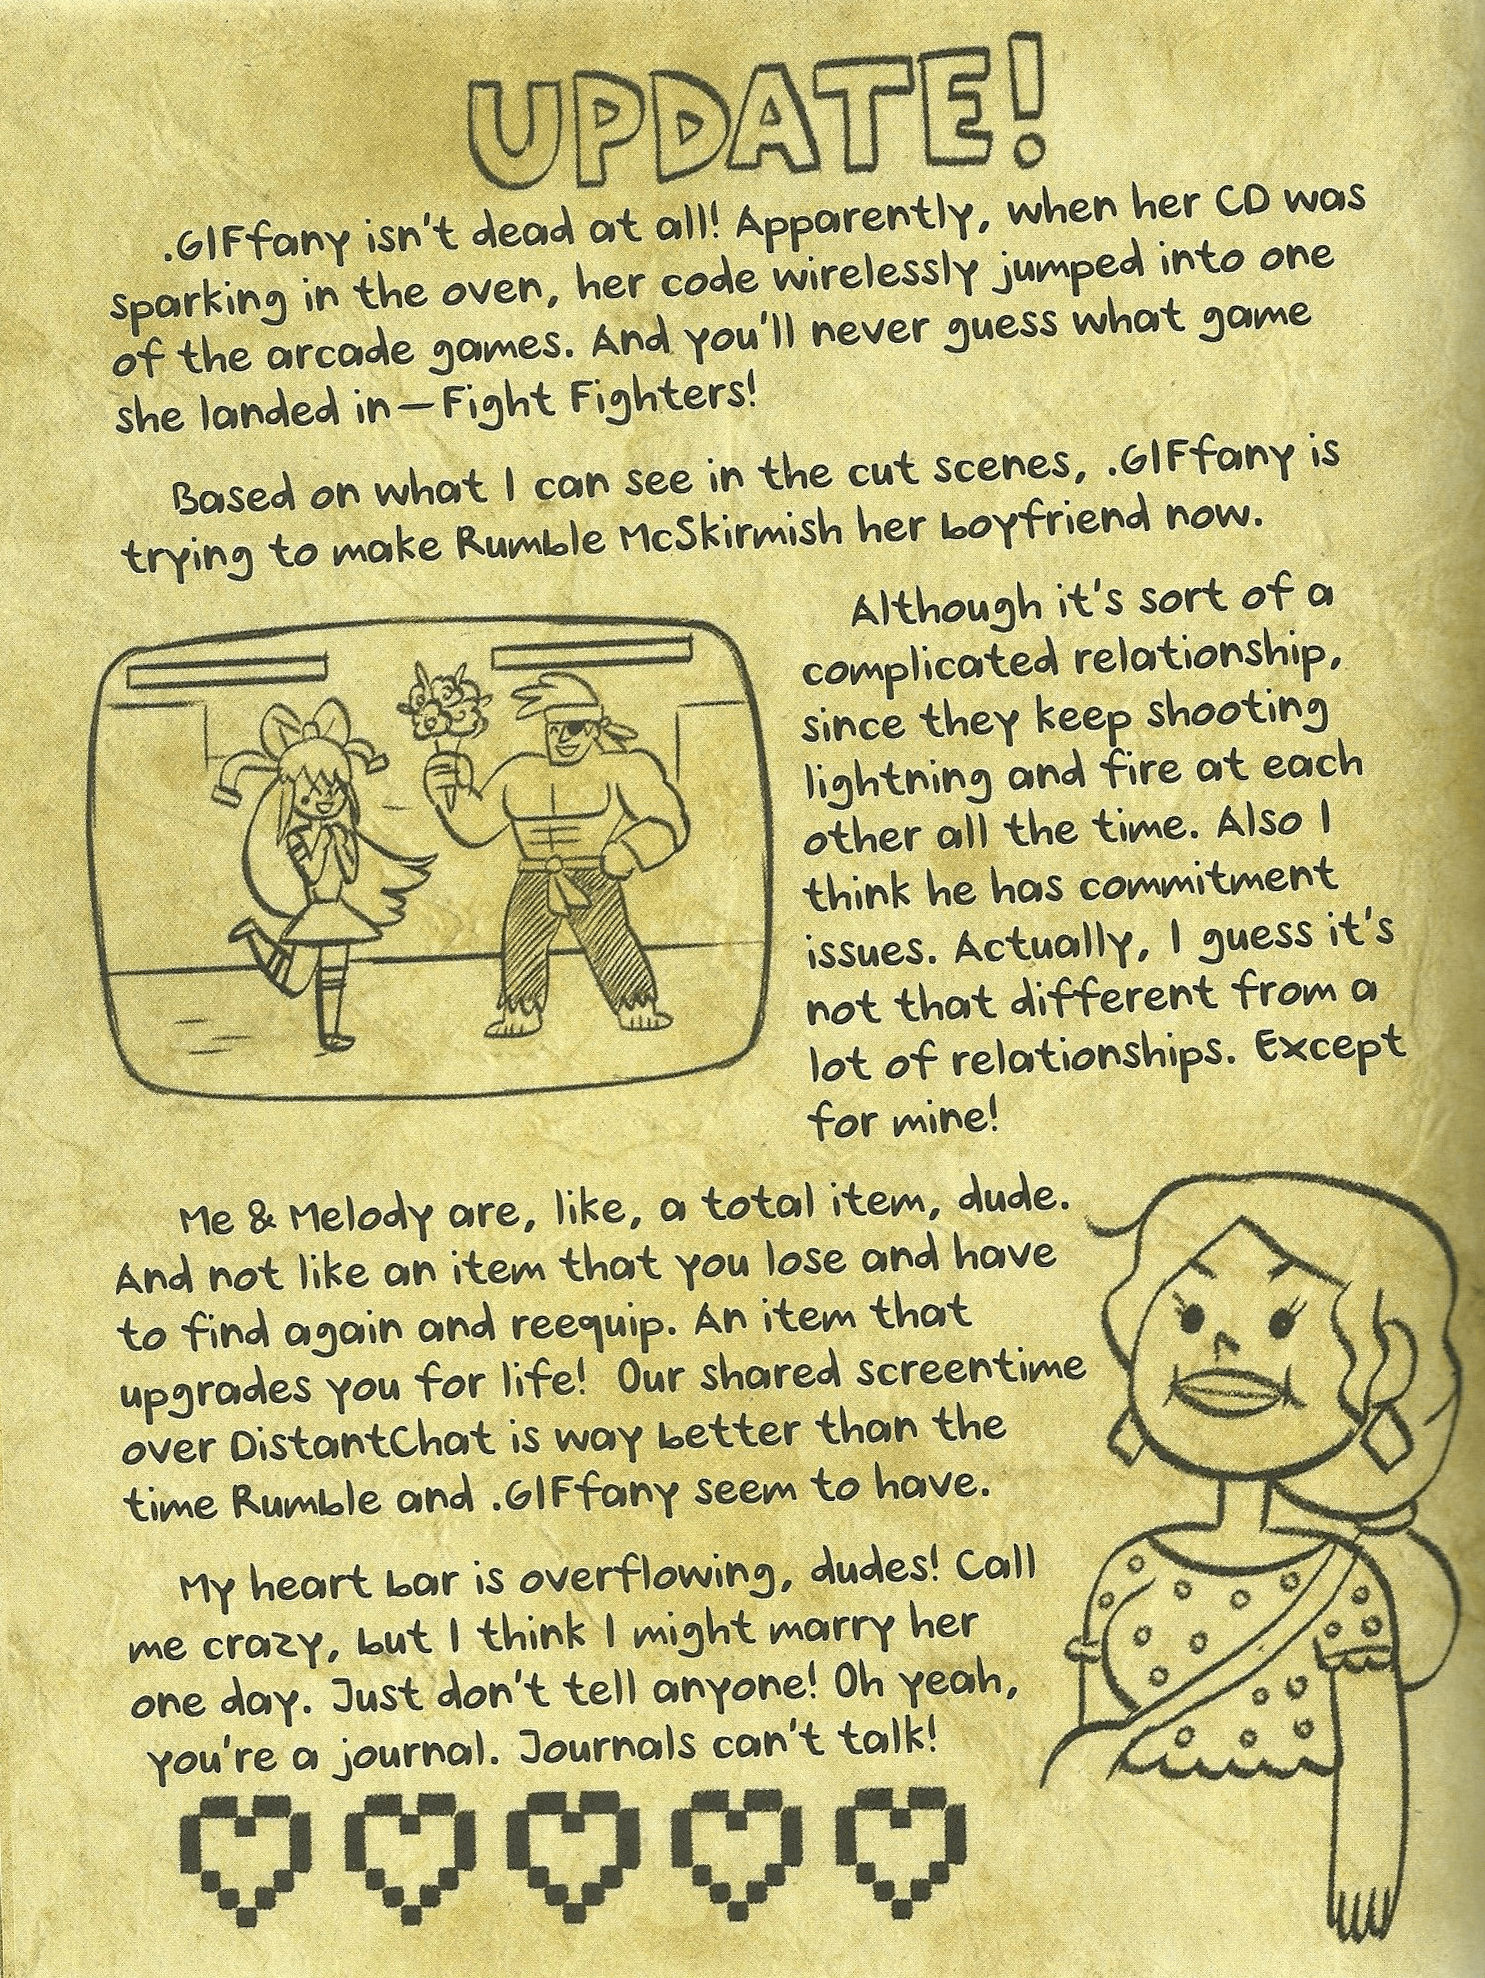 UPDATE!
.GIFfany isn't dead at all! Apparently, when her CD was
sparking in the oven, her code wirelessly jumped into one
of the arcade games. And you'll never guess what game
she landed in—Fight Fighters!
Based on what I can see in the cut scenes, .GIFfany is
trying to make Rumble McSkirmish her boyfriend now.
Although it's sort of a
complicated relationship,
since they keep shooting
lightning and fire at each
other all the time. Also I
think he has commitment
issues. Actually, I guess it's
not that different from a
lot of relationships. Except
for mine!
Me & Melody are, like, a total item, dude.
And not like an item that you lose and have
to find again and reequip. An item that
upgrades you for life! Our shared screentime
over DistantChat is way better than the
time Rumble and .GIFfany seem to have.
My heart bar is overflowing, dudes! Call
me crazy, but I think I might marry her
one day. Just don't tell anyone! Oh yeah,
you're a journal. Journals can't talk!